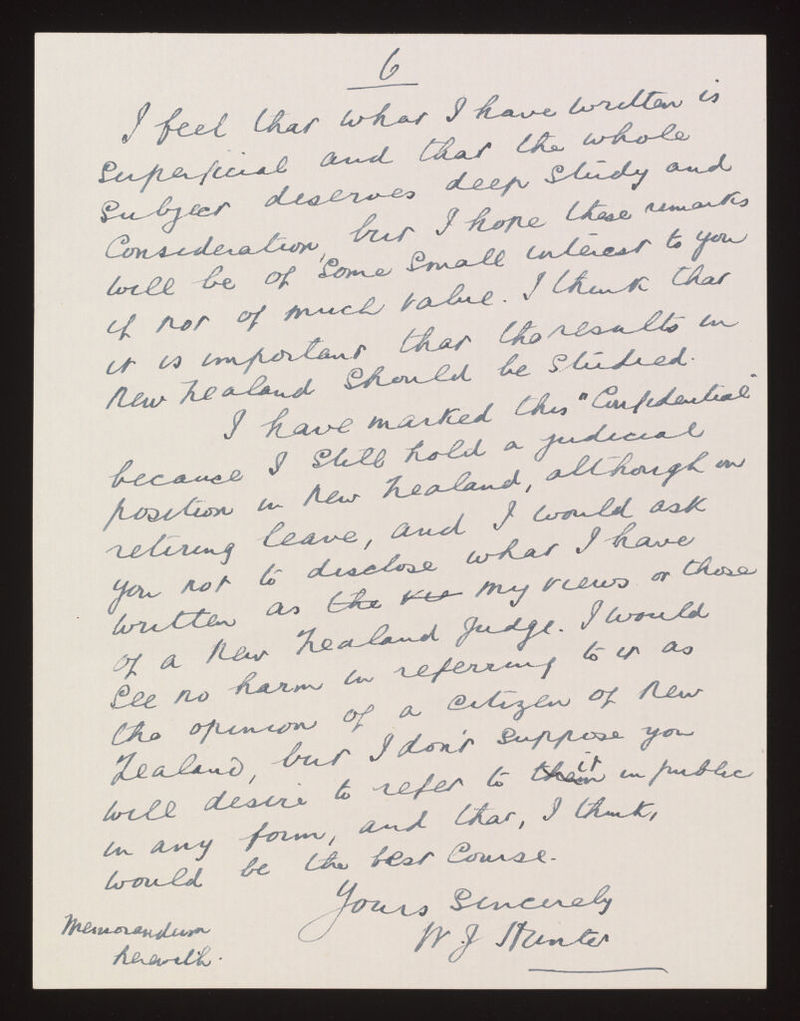 6
I feel that what I have written is
superficial and that the whole
subject deserves deep study and
consideration, but I hope these remarks
will be of some small interest to you
if not of much value. I think that
it is important that the results in
New Zealand should be studied.
I have marked this "Confidential"
because I still hold a judicial
position in New Zealand, although on
retiring leave, and I would ask
you not to disclose what I have
written as the vie my views or those
of a New Zealand Judge. I would
see no harm in referring to it as
the opinion of a citizen of New
Zealand, but I don't suppose you
will desire to refer to them it in public
in any form, and that, I think,
would be the best course.
Yours sincerely
W J Hunter
Memorandum
herewith.